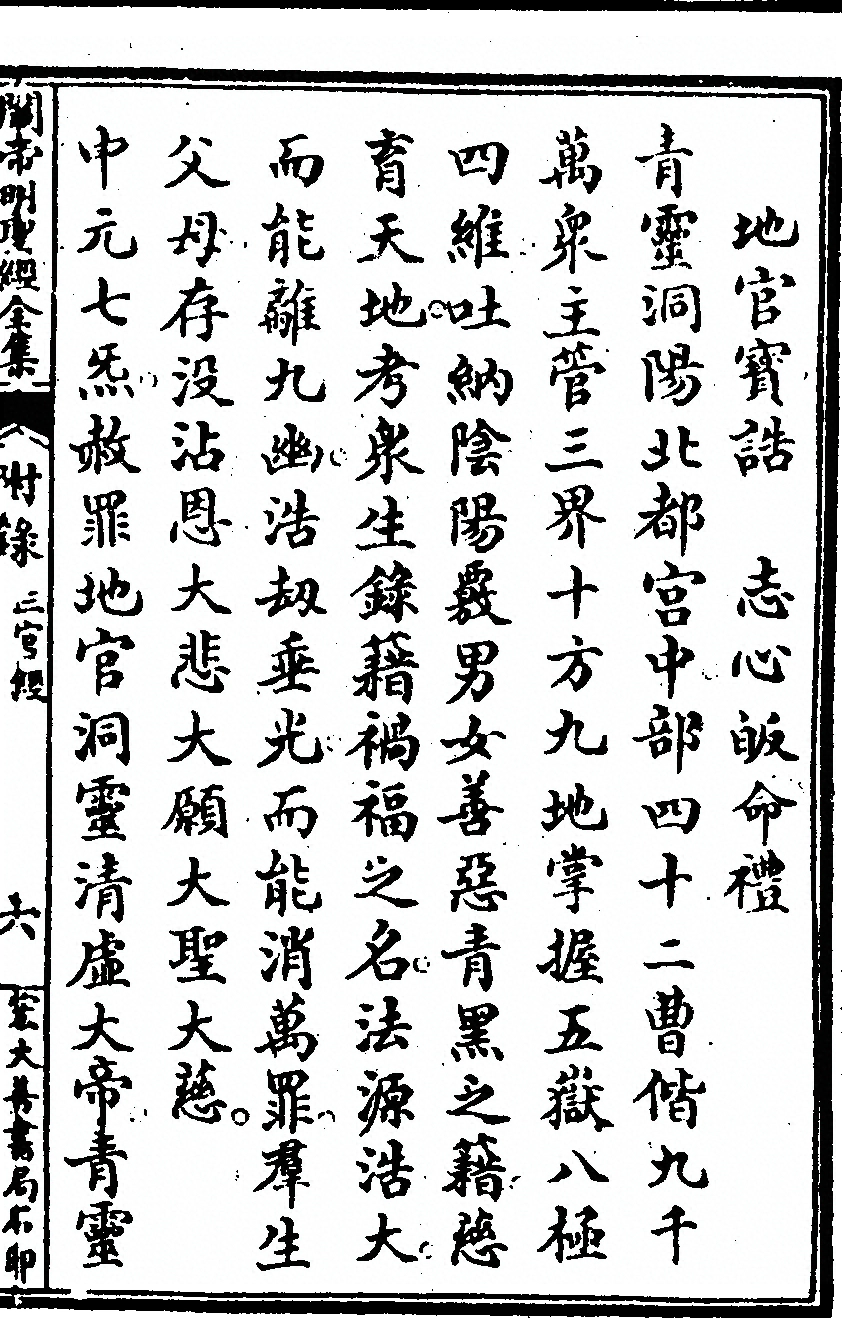 地官寶誥　志心皈命禮
青靈洞陽北都宮中部四十二曹偕九千
萬衆主管三界十方九地掌握五嶽八極
四維吐納陰陽覈男女善惡青黑之籍慈
育天地考衆生錄籍禍福之名法源浩大
而能離九幽浩劫垂光而能消萬罪羣生
父母存没沾恩大悲大願大聖大慈
中元七炁赦罪地官洞靈清虛大帝青靈
關帝明聖經全集
附錄
三官經
六
宏大善書局石印